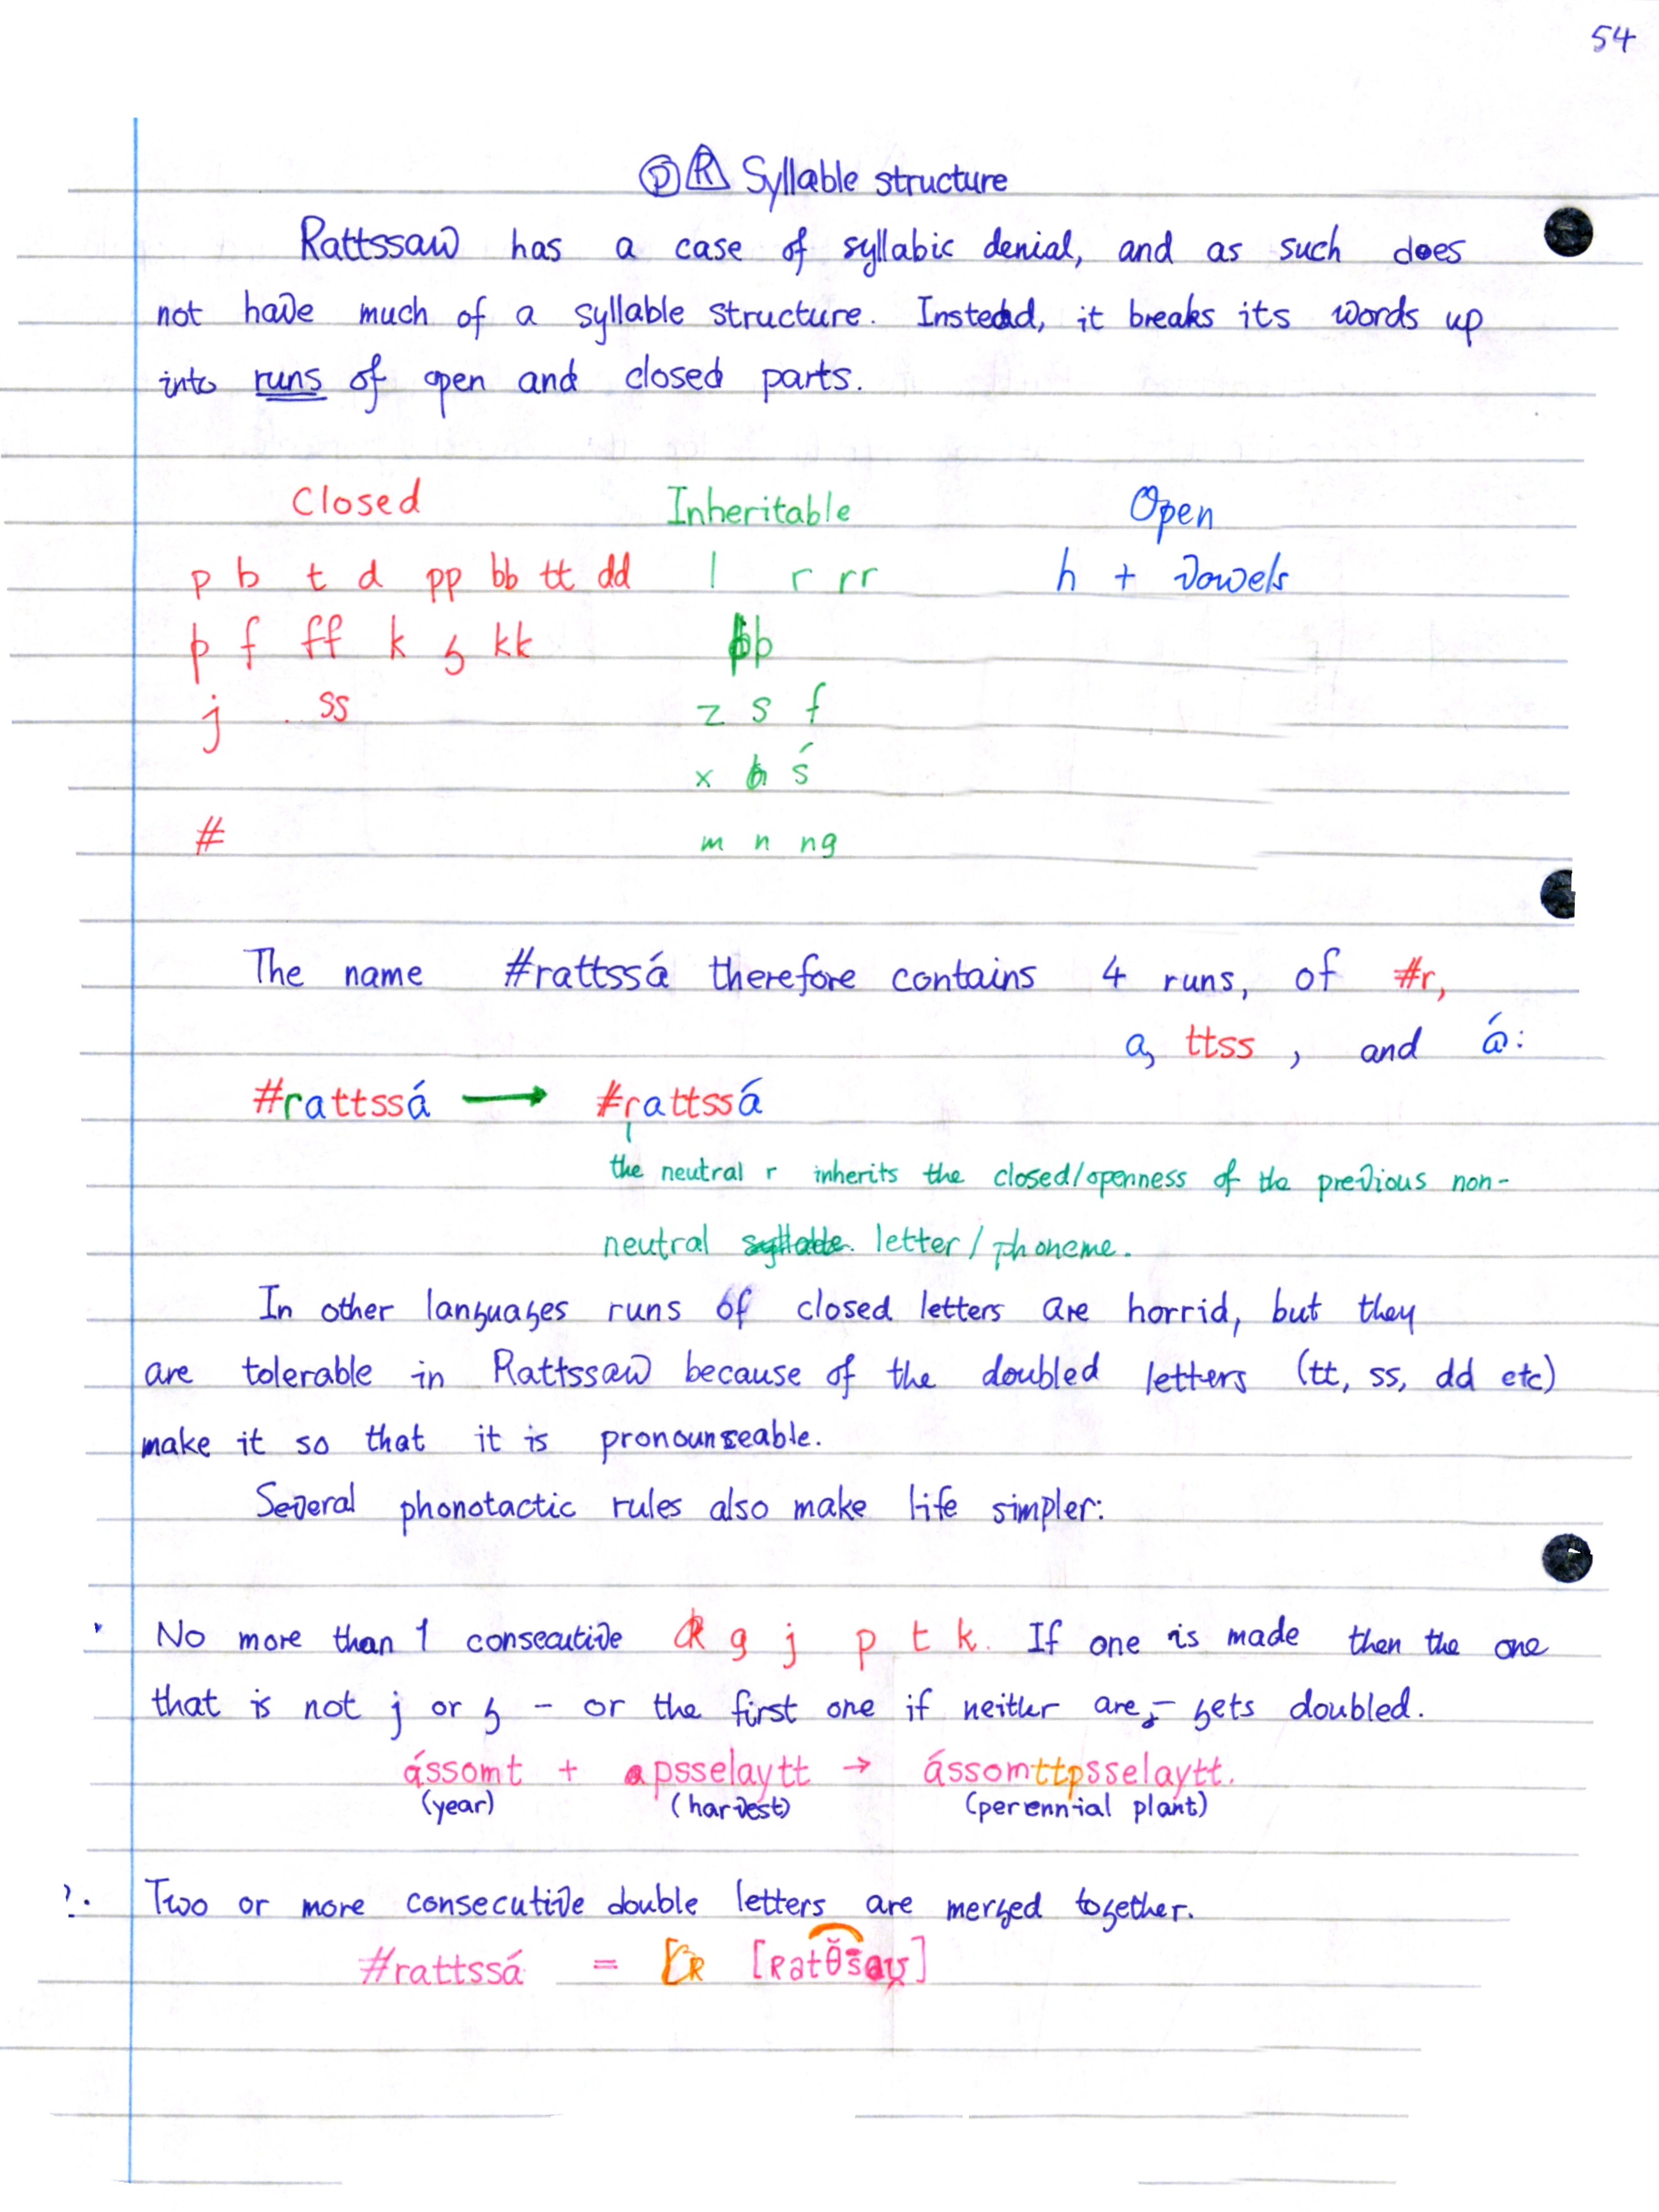 54
Ⓟ Ⓡ Syllable structure
Rattssaw has a case of syllabic denial, and as such does
not have much of a syllable structure. Instead, it breaks its words up
into runs of open and closed parts.
Closed Inheritable Open
p b t d pp bb tt dd l r rr h + vowels
þ f ff k g kk
j ss z s f
x ś
# m n ng
The name #rattssá therefore contains 4 runs, of #r,
a, ttss, and á:
#rattssá → #rattssá
the neutral r inherits the closed/openness of the previous non-
neutral letter/phoneme.
In other languages runs of closed letters are horrid, but they
are tolerable in Rattssaw because of the doubled letters (tt, ss, dd etc)
make it so that it is pronounseable.
Several phonotactic rules also make life simpler:
No more than 1 consecutive g j p t k. If one is made then the one
that is not j or g - or the first one if neither are, - gets doubled.
ássomt + psselaytt → ássomttpsselaytt.
(year) (harvest) (perennial plant)
2. Two or more consecutive double letters are merged together.
#rattssá =